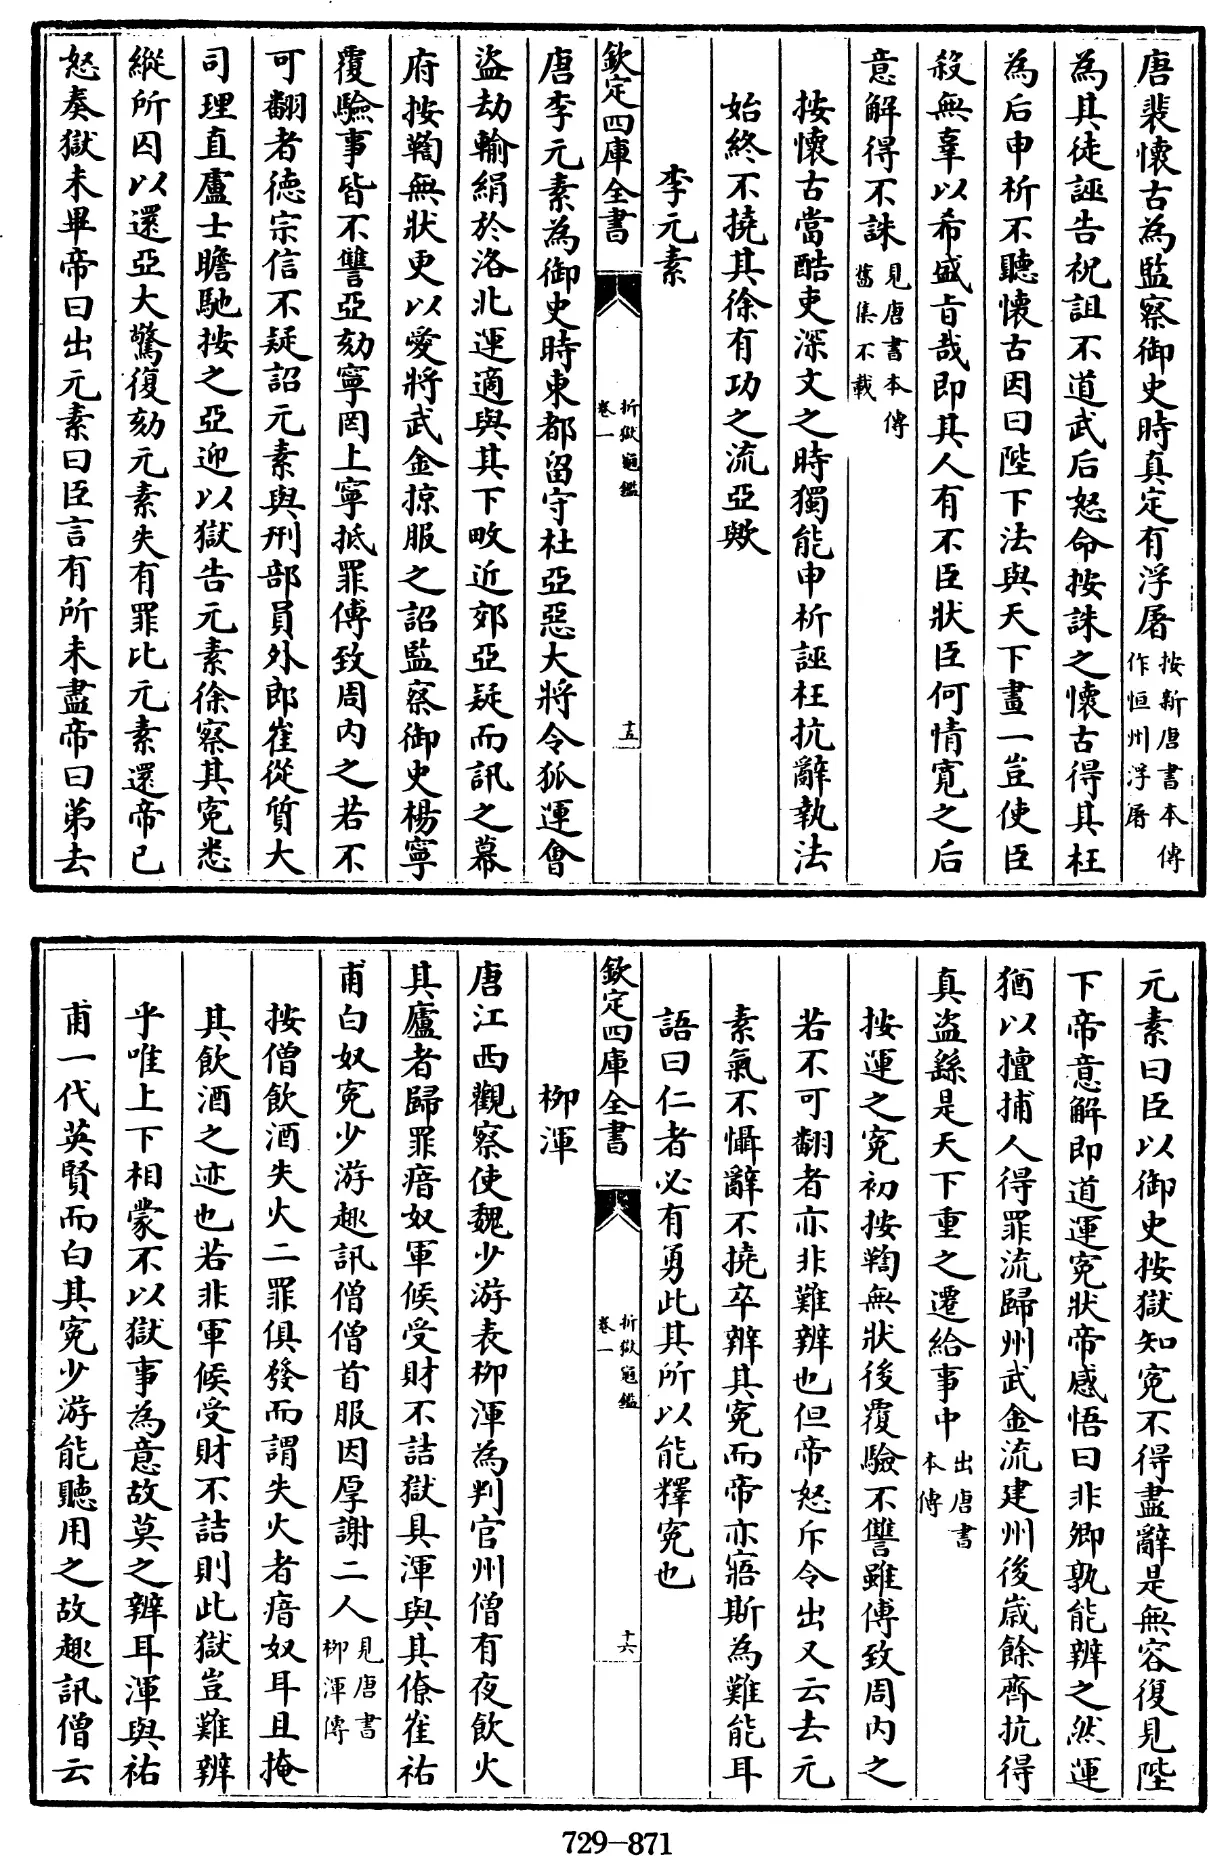 唐裴懷古為監察御史時真定有浮屠按新唐書本傳作恒州浮屠
為其徒誣告祝詛不道武后怒命按誅之懷古得其枉
為后申析不聽懷古因曰陛下法與天下畫一豈使臣
殺無辜以希盛旨哉即其人有不臣狀臣何情寬之后
意解得不誅見唐書本傳舊集不載
按懷古當酷吏深文之時獨能申析誣枉抗辭執法
始終不撓其徐有功之流亞歟
李元素
欽定四庫全書 折獄龜鑑卷一 十五
唐李元素為御史時東都留守杜亞惡大將令狐運會
盜劫輸絹於洛北運適與其下畋近郊亞疑而訊之幕
府按鞫無狀更以愛將武金掠服之詔監察御史楊寧
覆驗事皆不讐亞劾寧罔上寧抵罪傅致周内之若不
可翻者德宗信不疑詔元素與刑部員外郎崔從質大
司理直盧士瞻馳按之亞迎以獄告元素徐察其冤悉
縱所囚以還亞大驚復劾元素失有罪比元素還帝已
怒奏獄未畢帝曰出元素曰臣言有所未盡帝曰第去
元素曰臣以御史按獄知冤不得盡辭是無容復見陛
下帝意解即道運冤狀帝感悟曰非卿孰能辨之然運
猶以擅捕人得罪流歸州武金流建州後歲餘齊抗得
真盜繇是天下重之遷給事中出唐書本傳
按運之冤初按鞫無狀後覆驗不讐雖傅致周内之
若不可翻者亦非難辨也但帝怒斥令出又云去元
素氣不懾辭不撓卒辨其冤而帝亦寤斯為難能耳
語曰仁者必有勇此其所以能釋冤也
欽定四庫全書 折獄龜鑑卷一 十六
柳渾
唐江西觀察使魏少游表柳渾為判官州僧有夜飲火
其廬者歸罪瘖奴軍候受財不詰獄具渾與其僚崔祐
甫白奴冤少游趣訊僧僧首服因厚謝二人見唐書柳渾傳
按僧飲酒失火二罪俱發而謂失火者瘖奴耳且掩
其飲酒之迹也若非軍候受財不詰則此獄豈難辨
乎唯上下相蒙不以獄事為意故莫之辨耳渾與祐
甫一代英賢而白其冤少游能聽用之故趣訊僧云
729-871